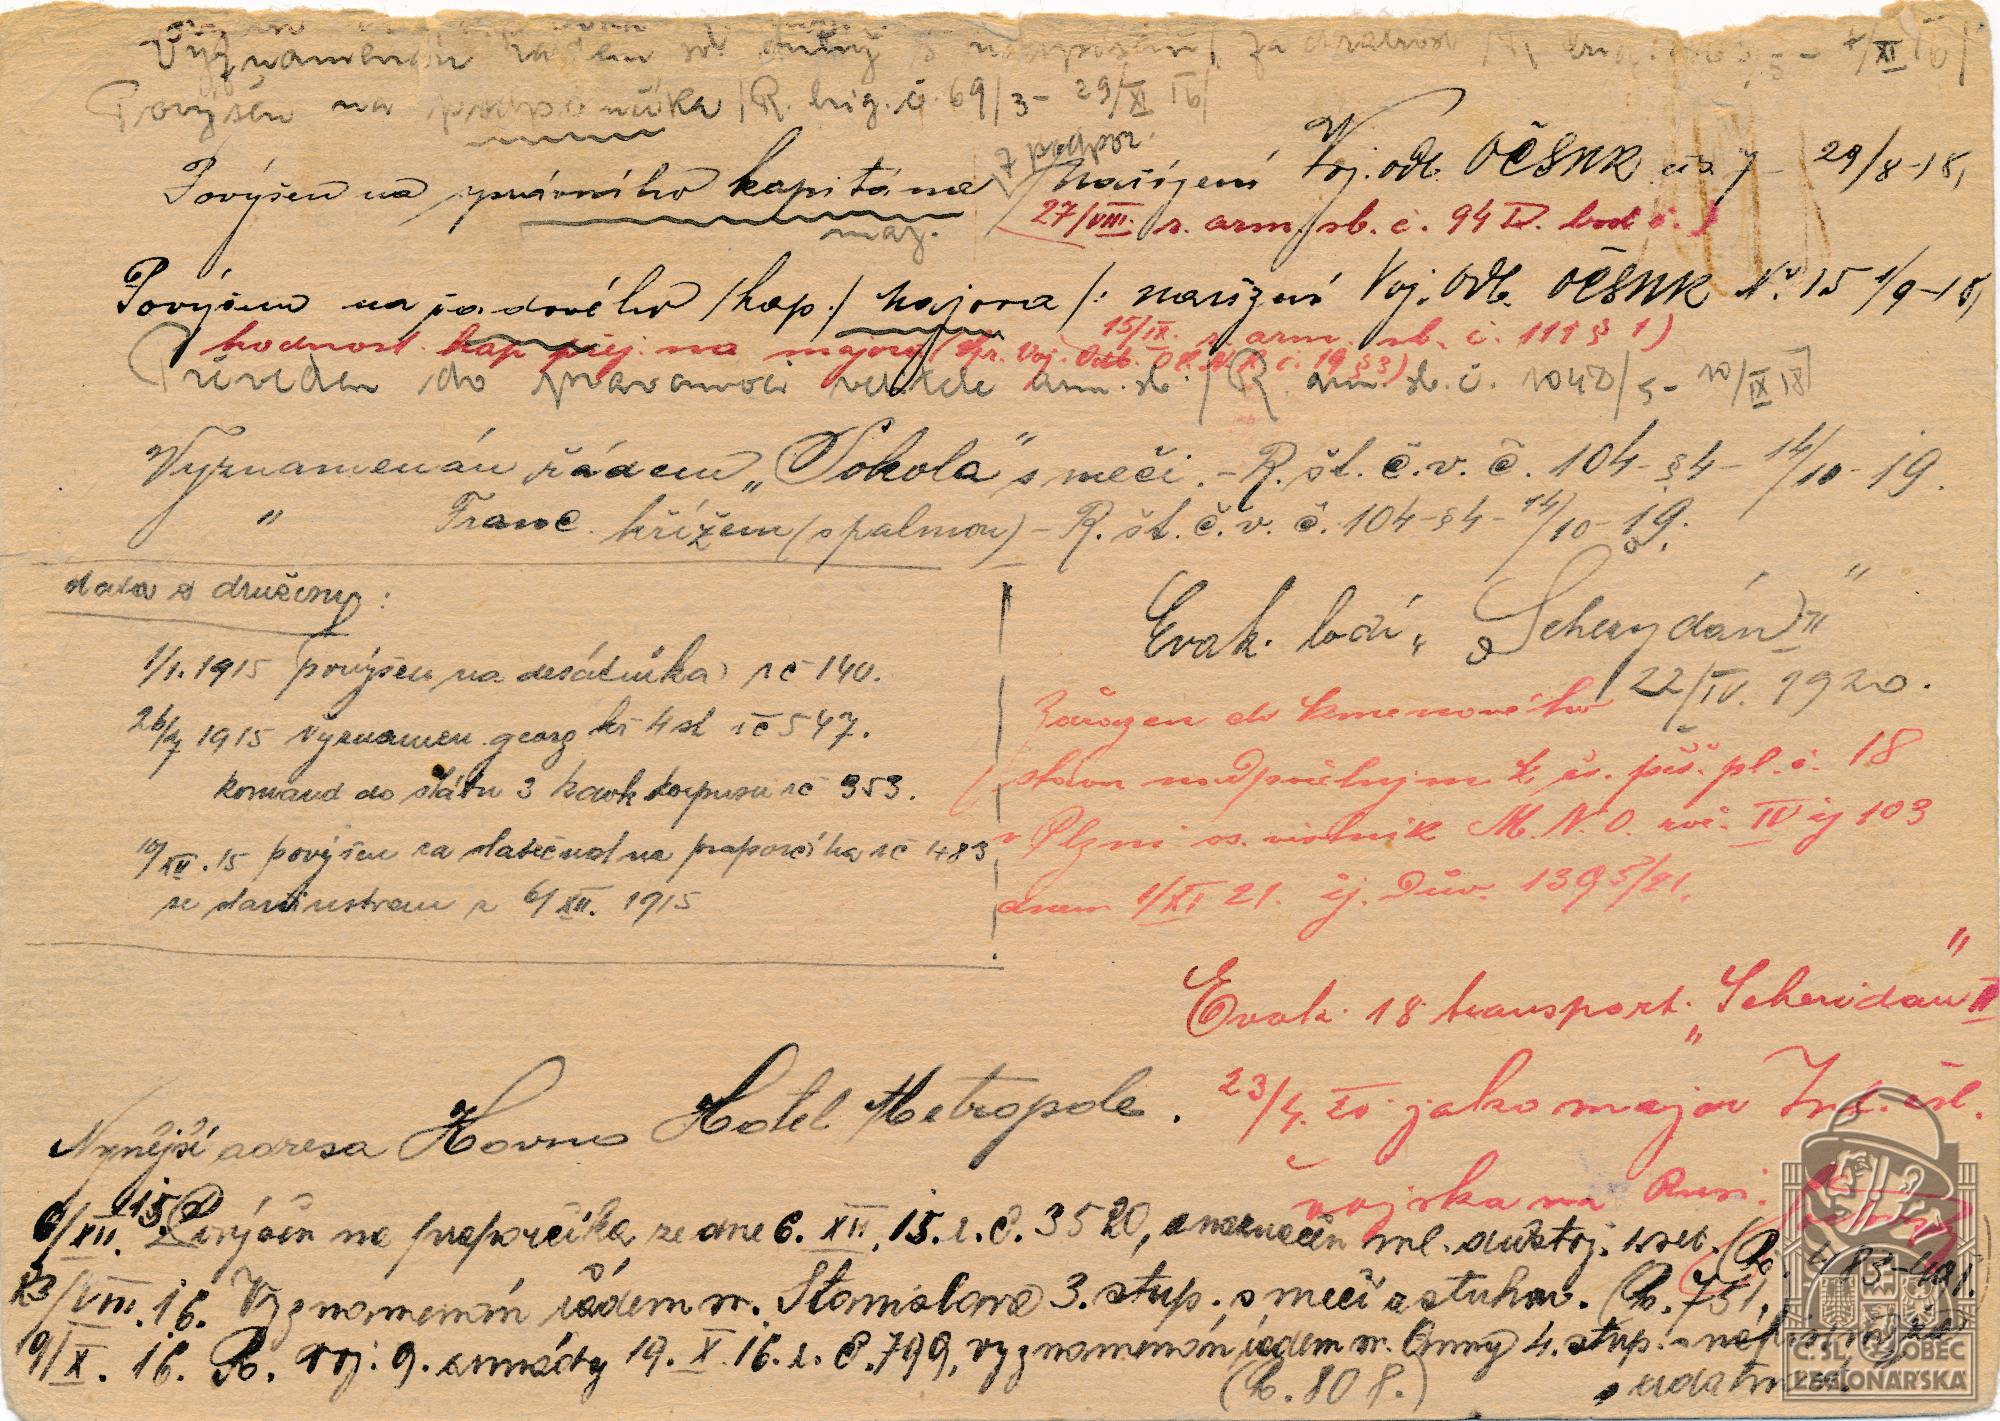 Vyznamenán řádem sv. Anny s nápisem za
Povýšen na podporučíka /R. brig. č. 69/3 - 29/XI 16/
z podpor.
Povýšen na správního kapitána /nařízení Voj. odb. OČSNR čís. 7 - 29/8-18,
27/VIII. r. arm. sb. č. 94 IV. bod č. )
maj.
Povýšen na řadového /kap./ majora /: nařízení Voj. Odb. OČSNR № 15 1/9-18,
15/IX. r. arm. sb. č. 111 § 1)
hodnost kap. přej. na majora (Voj. Odb. č. 19 § 3)
Převeden do pravomoci velitele arm. sb. /R. arm. sb. č. 1048/5 - 10/IX 18/
Vyznamenán řádem „Sokola" s meči. - R. št. č. v. č. 104 - §4 - 14/10 - 19.
" Franc. křížem (s palmou) - R. št. č. v. č. 104 - §4 - 14/10 - 19.
data z družiny:
1/1. 1915 povýšen na desátníka rč 140.
26/4 1915 vyznamen. georg kř 4 st rč 547.
komand do štábu 3 kavk korpusu rč 353.
10/XII. 15 povýšen za statečnost na praporčíka rč 483
se staršinstvem z 6/XII. 1915
Evak. lodí „Scherydán" II
22/IV. 1920.
Zařazen do kmenového
stavu u čs. pěš. pl. č. 18
v Plzni os. věstník M. N. O. roč. IV čj 103
dnem 1/XI 21. čj. Dův. 1395/21.
Evak. 18 transport. „Scheridan" II
23/4. 20 jako major Int. čsl.
vojska na Rusi.
Nynější adresa Kovno Hotel Metropole.
6/XII. 15. Povýšen na praporčíka ze dne 6. XII. 15. r. č. 3520, a naznačen ml. důstoj. (R. 483-401.
23/VIII. 16. Vyznamenán řádem sv. Stanislava 3. stup. s meči a stuhou. (R. 751,
19/X. 16. R. voj. 9. armády 19. X. 16. r. č. 799, vyznamenán řádem sv. Anny 4. stup. s nápisem za
(R. 808.) udatnost.
Č. SL. OBEC
LEGIONÁŘSKÁ